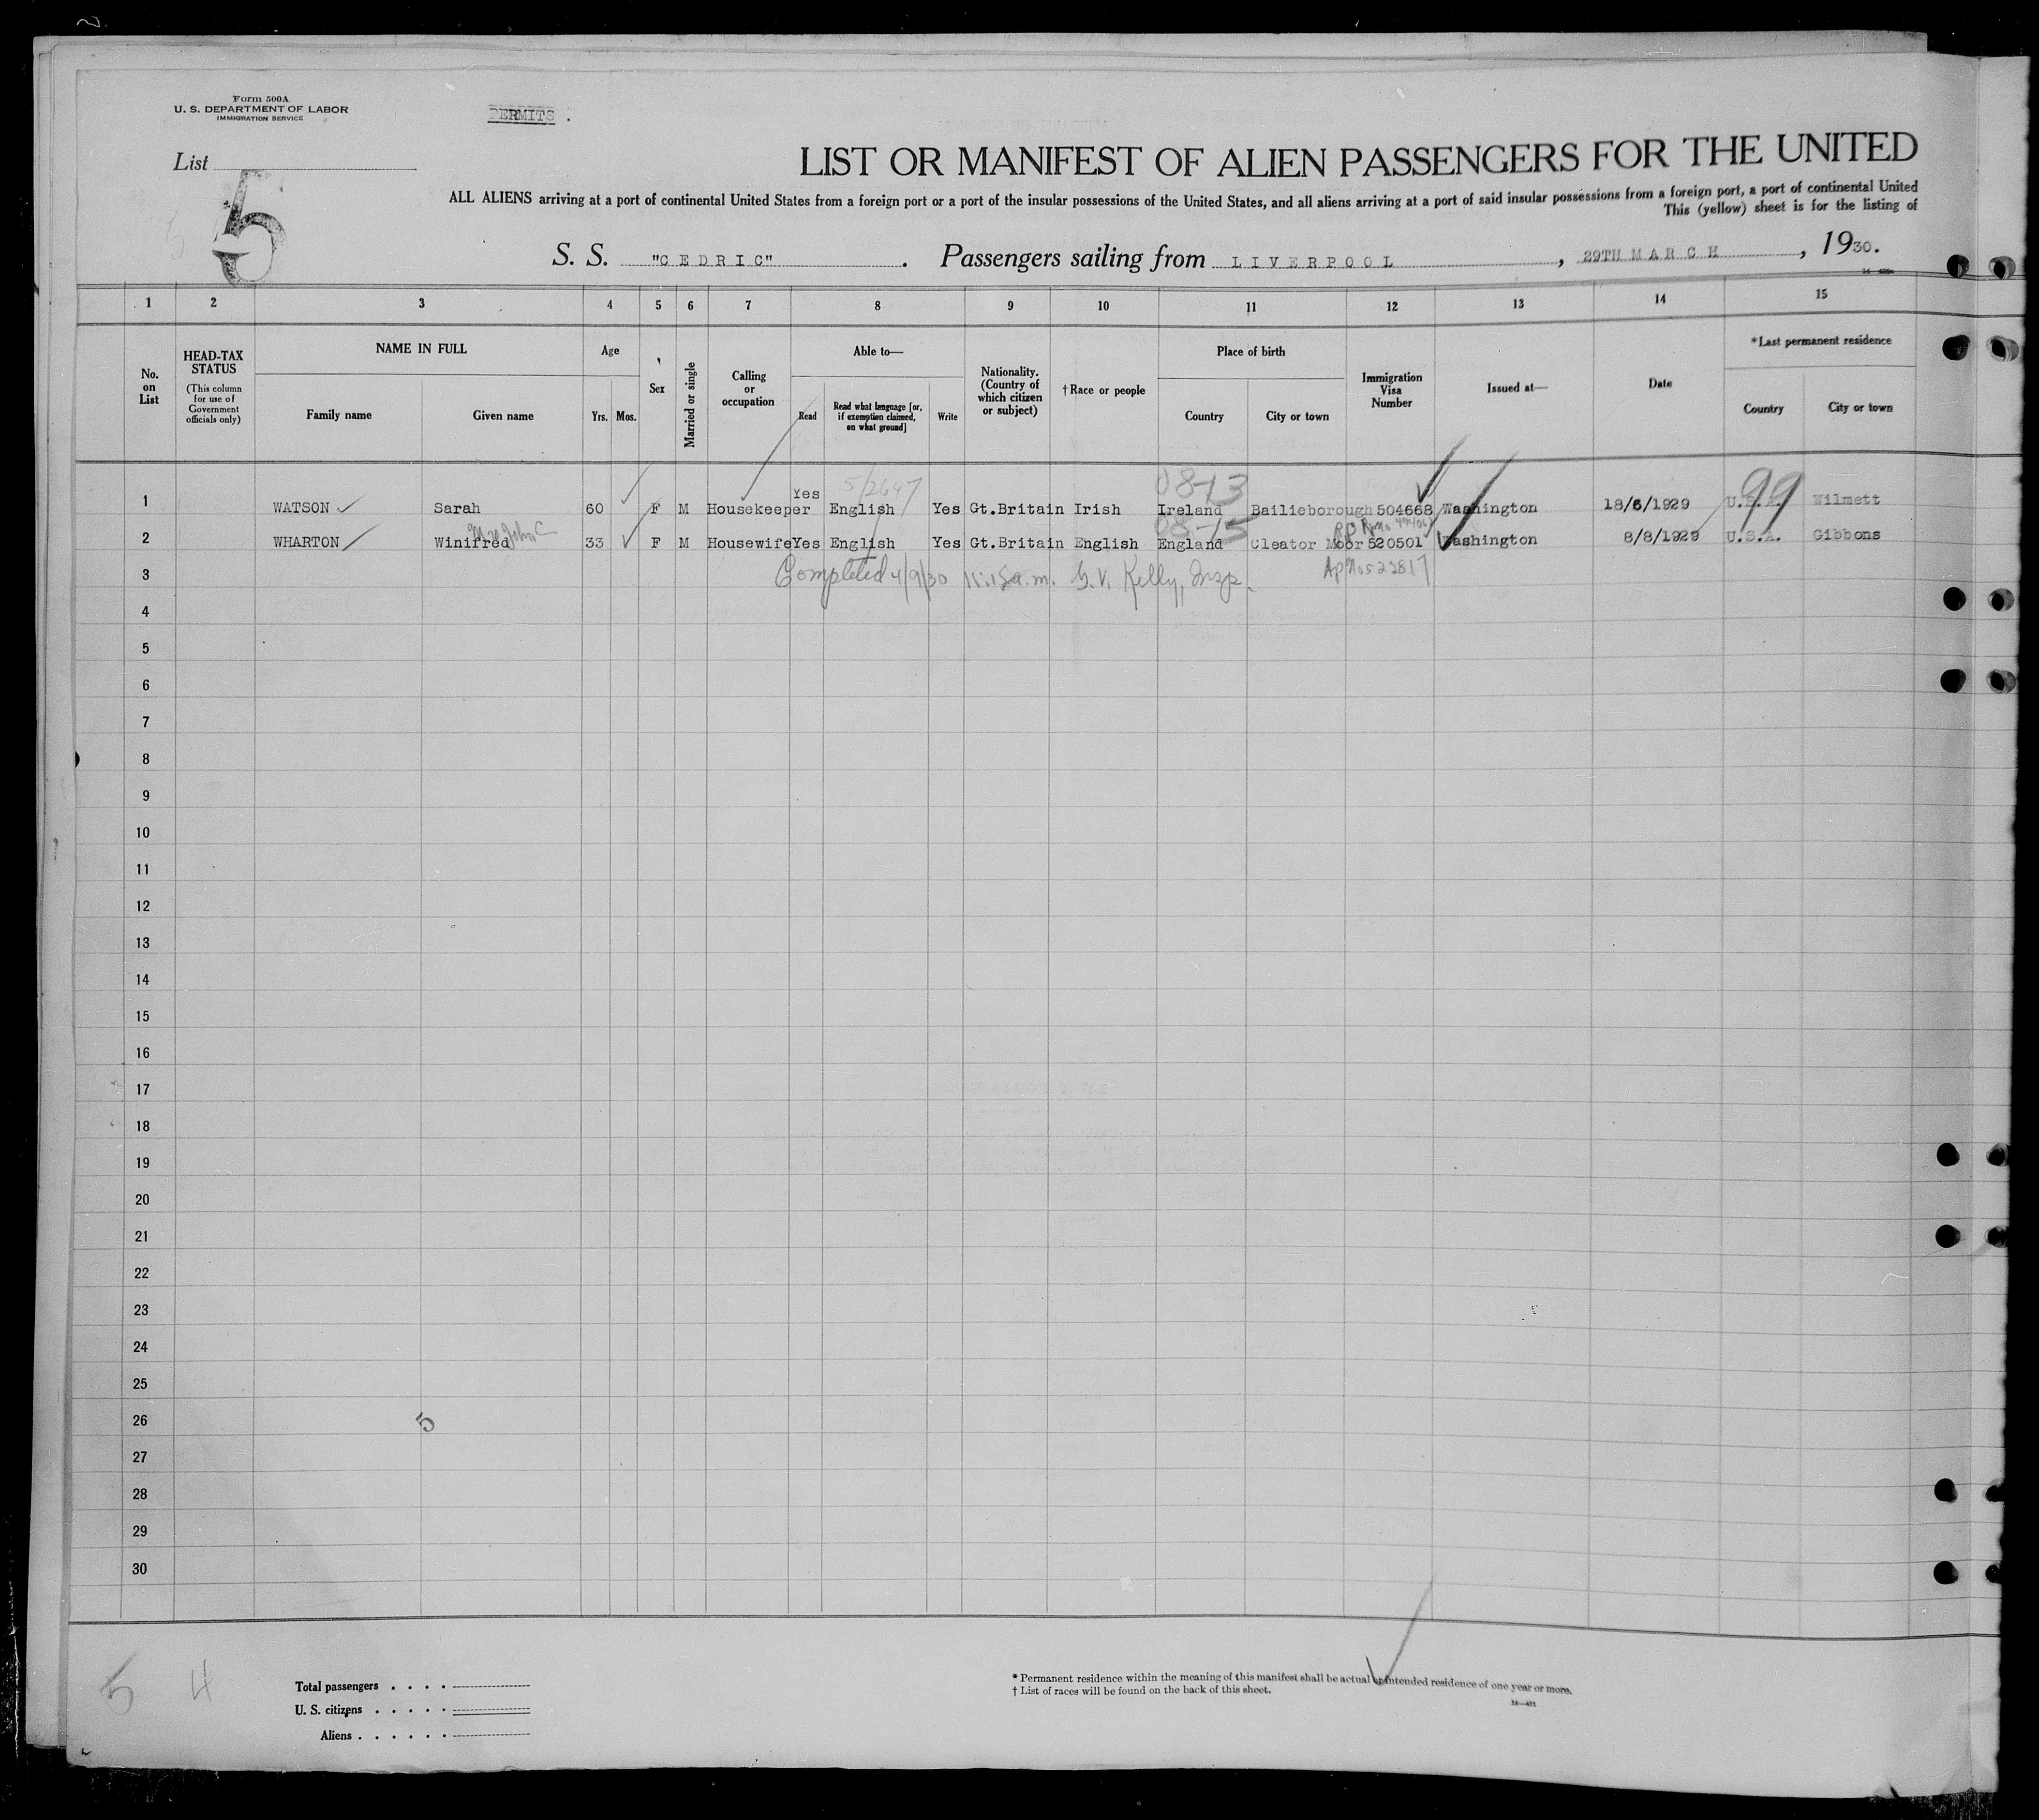 Form 500A
U. S. DEPARTMENT OF LABOR
IMMIGRATION SERVICE
PERMITS .
List
5
LIST OR MANIFEST OF ALIEN PASSENGERS FOR THE UNITED
ALL ALIENS arriving at a port of continental United States from a foreign port or a port of the insular possessions of the United States, and all aliens arriving at a port of said insular possessions from a foreign port, a port of continental United
This (yellow) sheet is for the listing of
S. S. "CEDRIC" . Passengers sailing from LIVERPOOL , 29TH MARCH , 1930.
1 2 3 4 5 6 7 8 9 10 11 12 13 14 15
No. on List
HEAD-TAX STATUS
(This column for use of Government officials only)
NAME IN FULL
Family name Given name
Age
Yrs. Mos.
Sex
Married or single
Calling or occupation
Able to—
Read
Read what language [or, if exemption claimed, on what ground]
Write
Nationality. (Country of which citizen or subject)
† Race or people
Place of birth
Country City or town
Immigration Visa Number
Issued at—
Date
* Last permanent residence
Country City or town
5/2647 08-13 99
1 WATSON Sarah 60 F M Housekeeper Yes English Yes Gt.Britain Irish Ireland Bailieborough 504668 Washington 18/6/1929 U.S.A. Wilmett
Mrs John C 08-15
2 WHARTON Winifred 33 F M Housewife Yes English Yes Gt.Britain English England Cleator Moor 520501 Washington 8/8/1929 U.S.A. Gibbons
3 Completed 4/9/30 11:15a.m. G.V. Kelly, Insp. Ap No 522817
4
5
6
7
8
9
10
11
12
13
14
15
16
17
18
19
20
21
22
23
24
25
26 5
27
28
29
30
5 4
Total passengers . . . .
U. S. citizens . . . . .
Aliens . . . . . .
* Permanent residence within the meaning of this manifest shall be actual or intended residence of one year or more.
† List of races will be found on the back of this sheet.